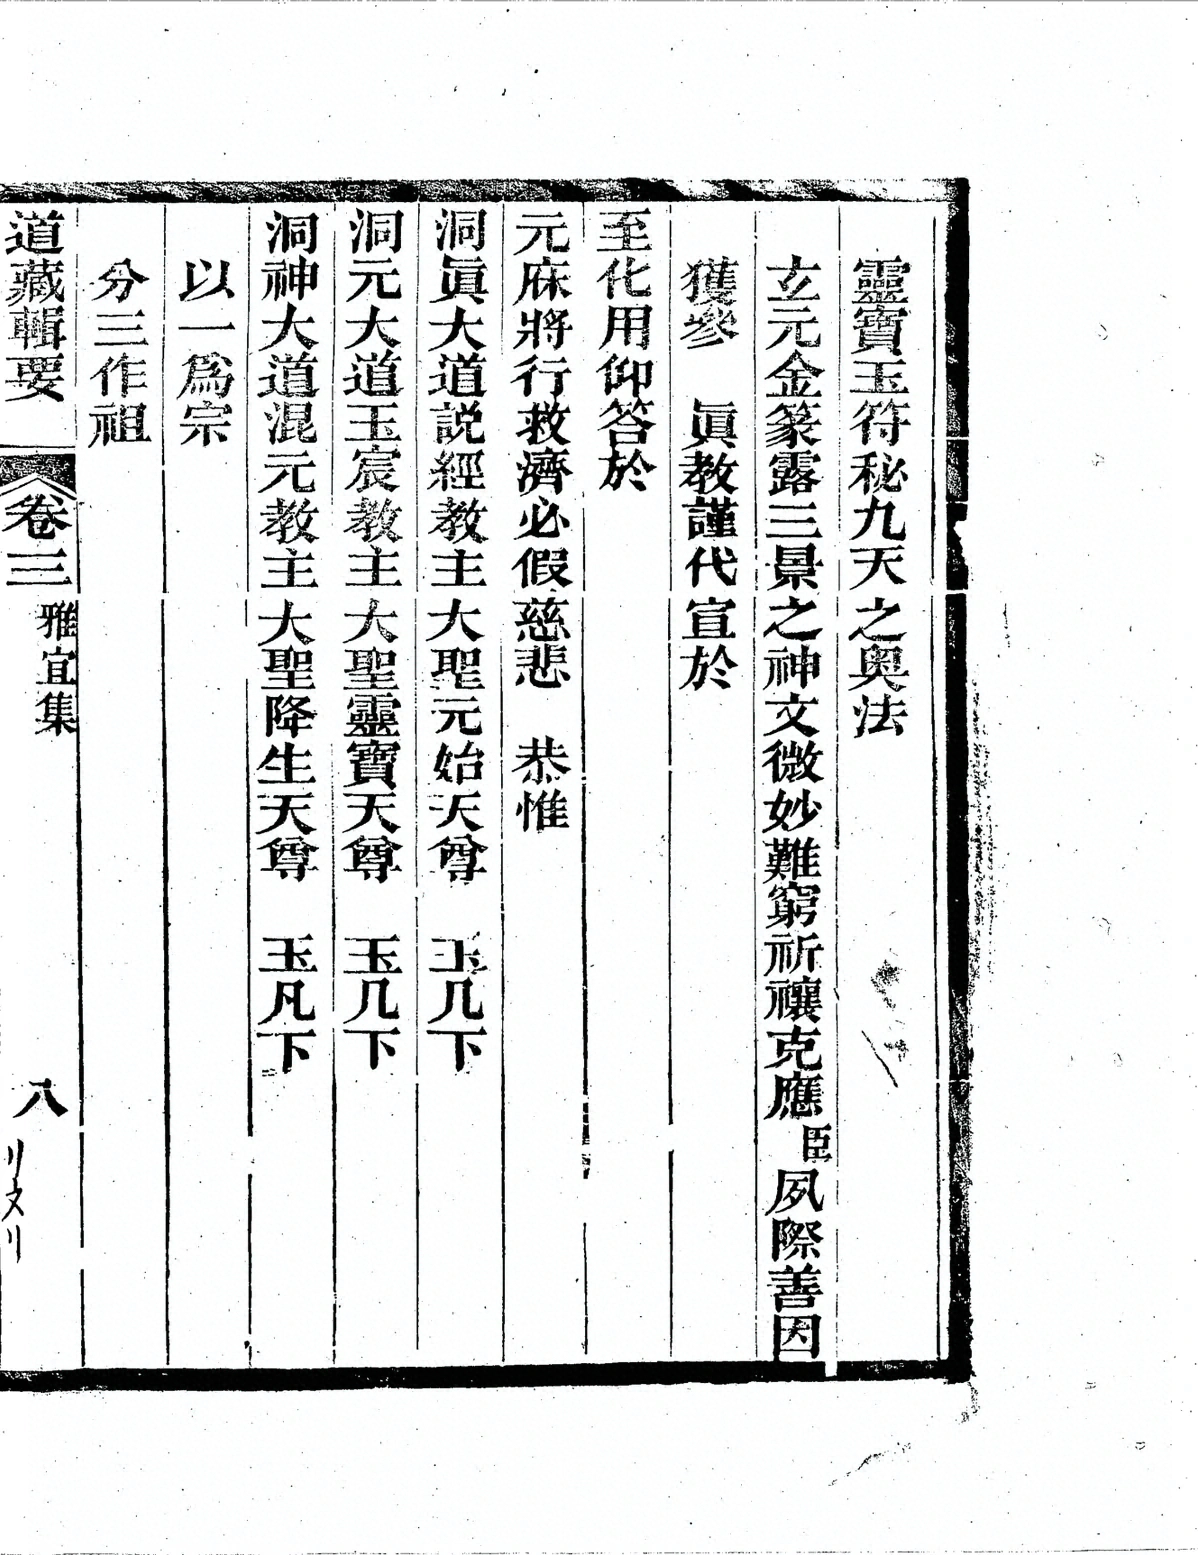 靈寶玉符秘九天之奥法
玄元金篆露三景之神文微妙難窮祈禳克應臣夙際善因
獲參　眞教謹代宣於
至化用仰答於
元庥將行救濟必假慈悲　恭惟
洞眞大道説經教主大聖元始天尊　玉几下
洞元大道玉宸教主大聖靈寶天尊　玉几下
洞神大道混元教主大聖降生天尊　玉凡下
以一爲宗
分三作祖
道藏輯要　卷三　雅宜集　八